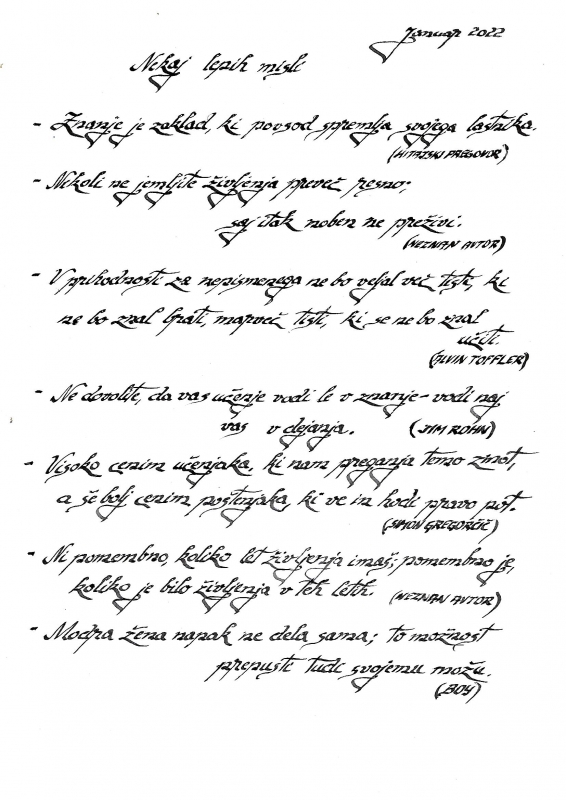 Januar 2022
Nekaj lepih misli
- Znanje je zaklad, ki povsod spremlja svojega lastnika.
(KITAJSKI PREGOVOR)
- Nikoli ne jemljite življenja preveč resno;
saj itak noben ne preživi.
(NEZNAN AVTOR)
- V prihodnosti za nepismenega ne bo veljal več tisti, ki
ne bo znal brati, marveč tisti, ki se ne bo znal
učiti.
(ALVIN TOFFLER)
- Ne dovolite, da vas učenje vodi le v znanje - vodi naj
vas v dejanja. (JIM ROHN)
- Visoko cenim učenjaka, ki nam preganja temo zmot,
a še bolj cenim poštenjaka, ki ve in hodi pravo pot.
(SIMON GREGORČIČ)
- Ni pomembno, koliko let življenja imaš; pomembno je,
koliko je bilo življenja v teh letih. (NEZNAN AVTOR)
- Modra žena napak ne dela sama; to možnost
prepusti tudi svojemu možu.
(BOY)